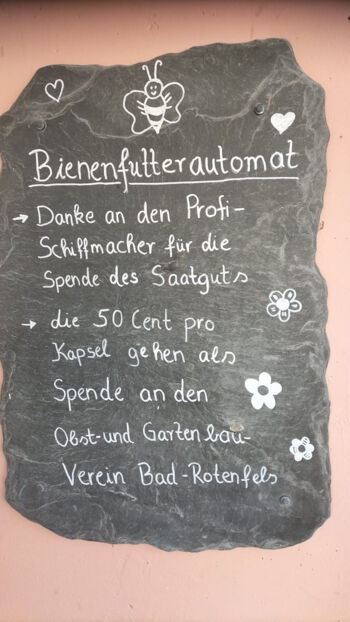 Bienenfutterautomat
→ Danke an den Profi-
Schiffmacher für die
Spende des Saatguts
→ die 50 Cent pro
Kapsel gehen als
Spende an den
Obst-und Gartenbau-
Verein Bad-Rotenfels